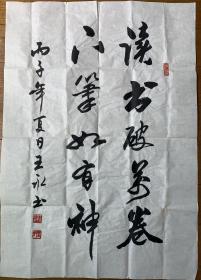 读书破万卷
下笔如有神
丙子年夏日王永书